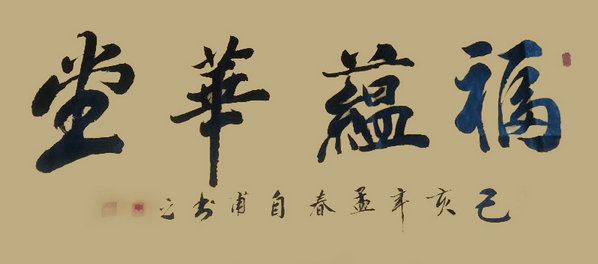 福蘊華堂
己亥年孟春自甫书之